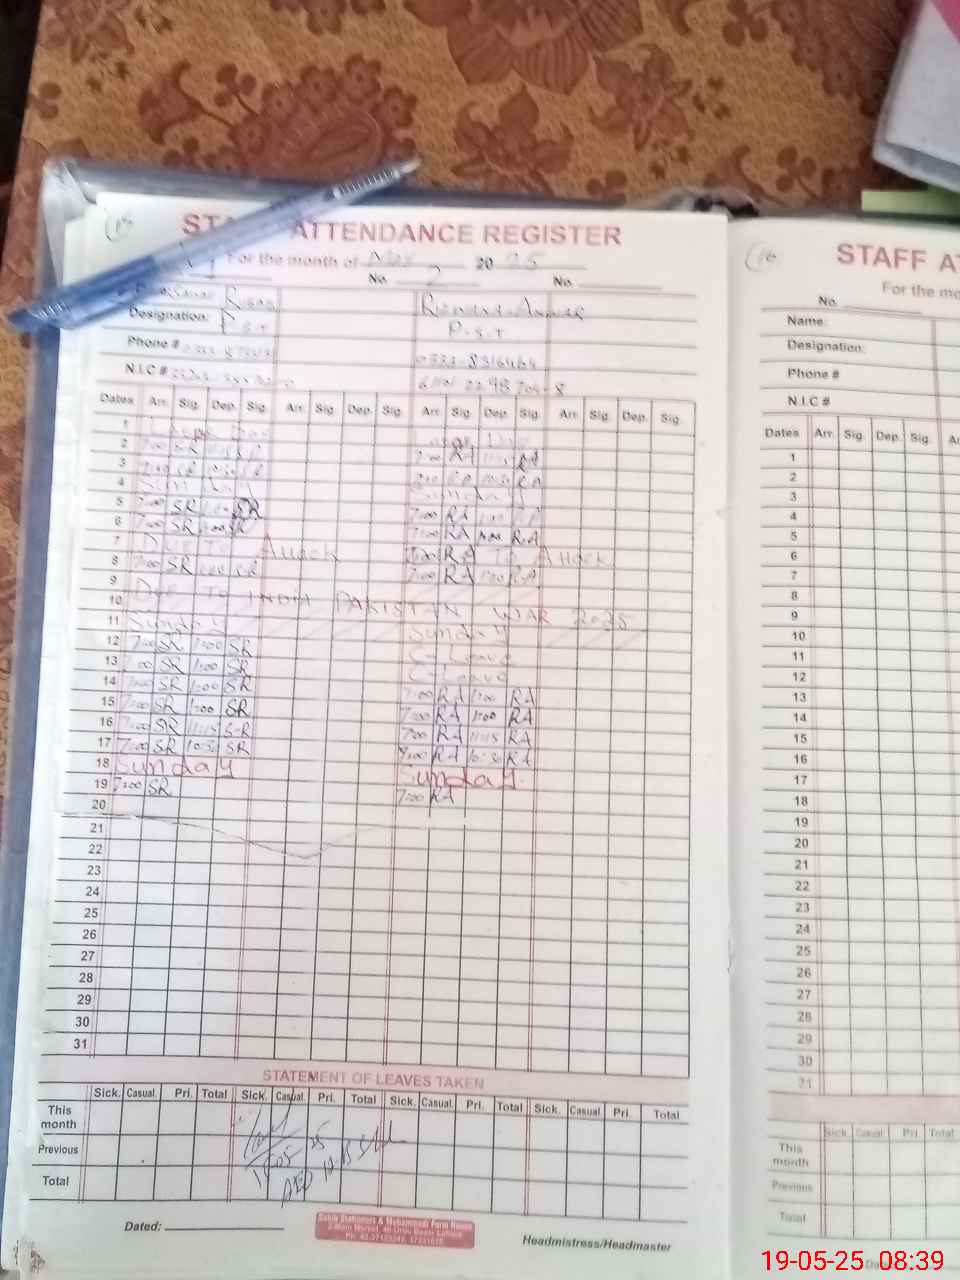 STA ATTENDANCE REGISTER
For the month of May 2025
No. 2 No.
Rizwana
Designation: P.S.T P.S.T
Phone # 0333-8316464
N.I.C #
Dates Arr. Sig. Dep. Sig. Arr. Sig. Dep. Sig. Arr. Sig. Dep. Sig. Arr. Sig. Dep. Sig.
1 Labour Day Labour Day
2 7:00 SR 11:15 SR 7:00 RA 11:15 RA
3 7:00 SR 10:30 SR 7:00 RA 10:30 RA
4 Sunday Sunday
5 7:00 SR 1:00 SR 7:00 RA 1:00 RA
6 7:00 SR 1:00 SR 7:00 RA 1:00 RA
7 Due To Attack 7:00 RA To Attack
8 7:00 SR 1:00 SR 7:00 RA 1:00 RA
9
10 Due To INDIA PAKISTAN WAR 2025
11 Sunday Sunday
12 7:00 SR 1:00 SR C-Leave
13 7:00 SR 1:00 SR C-Leave
14 7:00 SR 1:00 SR 7:00 RA 1:00 RA
15 7:00 SR 1:00 SR 7:00 RA 1:00 RA
16 7:00 SR 11:15 SR 7:00 RA 11:15 RA
17 7:00 SR 10:30 SR 7:00 RA 10:30 RA
18 Sunday Sunday
19 7:00 SR 7:00 RA
20
21
22
23
24
25
26
27
28
29
30
31
STATEMENT OF LEAVES TAKEN
Sick. Casual. Pri. Total Sick. Casual. Pri. Total Sick. Casual. Pri. Total Sick. Casual. Pri. Total
This month
Previous
Total
AEO
Dated:
Headmistress/Headmaster
16
STAFF AT
For the mo
No.
Name:
Designation:
Phone #
N.I.C #
Dates Arr. Sig. Dep. Sig. Ar
1
2
3
4
5
6
7
8
9
10
11
12
13
14
15
16
17
18
19
20
21
22
23
24
25
26
27
28
29
30
31
Sick. Casual. Pri. Total
This month
Previous
Total
19-05-25 08:39